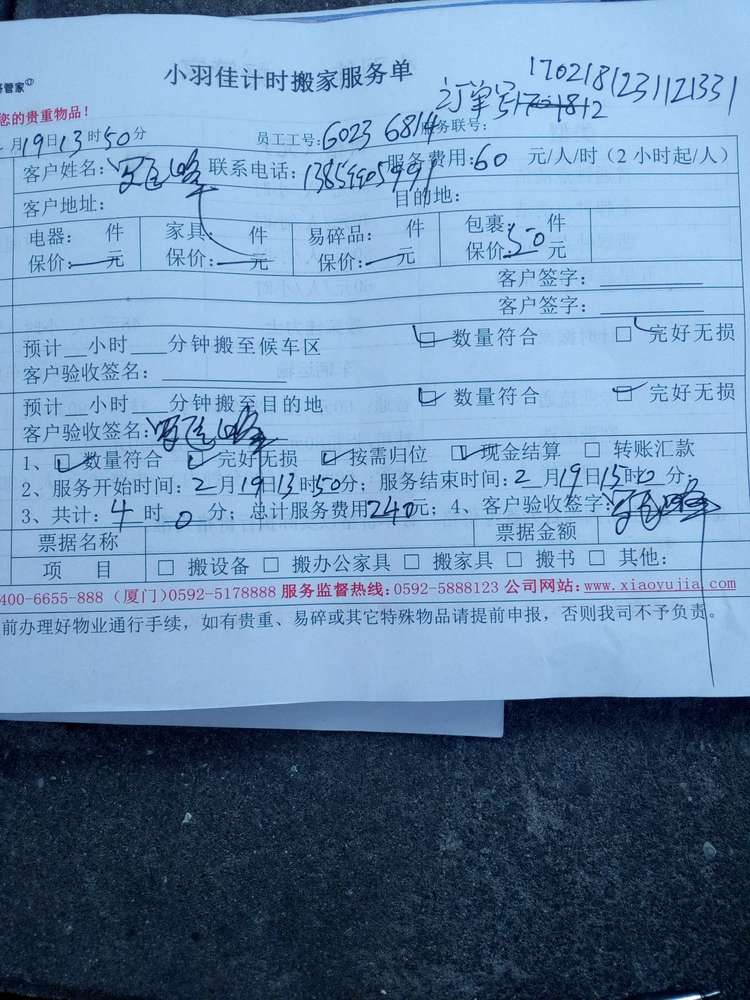 小羽佳计时搬家服务单
管家
订单号 170218123112133 1701812
您的贵重物品!
月19日13时50分 员工工号:6023 6814 服务联号:
客户姓名: 联系电话: 服务费用:60 元/人/时(2小时起/人)
客户地址: 目的地:
电器: 件 家具: 件 易碎品: 件 包裹: 件
保价:—元 保价:—元 保价:—元 保价:50元
客户签字:
客户签字:
预计__小时___分钟搬至候车区 ☑ 数量符合 ☑ 完好无损
客户验收签名:
预计__小时___分钟搬至目的地 ☑ 数量符合 ☑ 完好无损
客户验收签名:
1、☑ 数量符合 ☑ 完好无损 ☑ 按需归位 ☑ 现金结算 □ 转账汇款
2、服务开始时间:2月19日13时50分;服务结束时间:2月19日15时 分;
3、共计:4时0分;总计服务费用240元;4、客户验收签字:
票据名称 票据金额
项 目 □ 搬设备 □ 搬办公家具 □ 搬家具 □ 搬书 □ 其他:
400-6655-888 (厦门)0592-5178888 服务监督热线:0592-5888123 公司网站:www.xiaoyujia.com
前办理好物业通行手续,如有贵重、易碎或其它特殊物品请提前申报,否则我司不予负责。